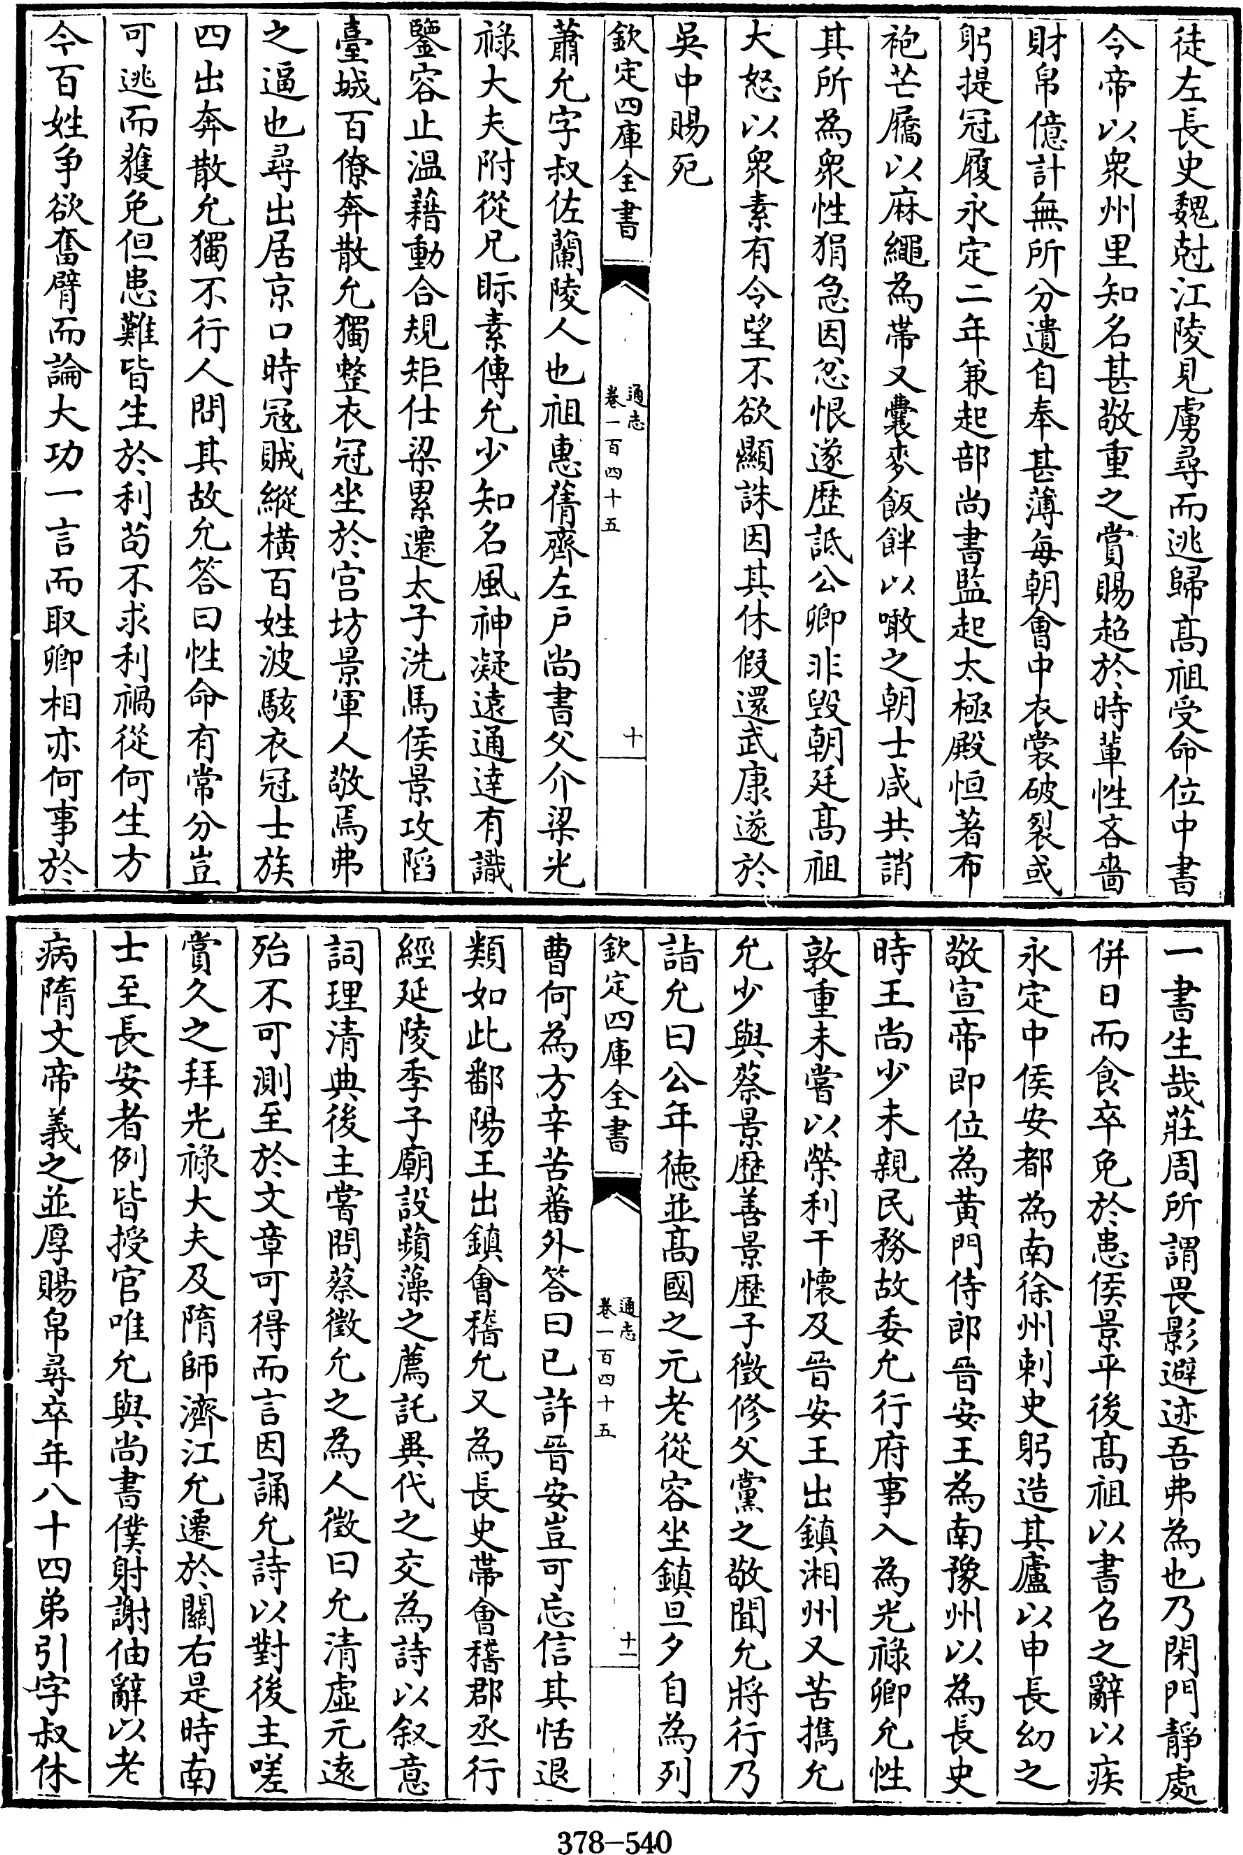 徒左長史魏尅江陵見虜尋而逃歸髙祖受命位中書
令帝以衆州里知名甚敬重之賞賜超於時輩性吝嗇
財帛億計無所分遺自奉甚薄每朝會中衣裳破裂或
躬提冠履永定二年兼起部尚書監起太極殿恒著布
袍芒屩以麻繩為帶又囊麥飯䴵以噉之朝士咸共誚
其所為衆性狷急因忿恨遂歴詆公卿非毀朝廷髙祖
大怒以衆素有令望不欲顯誅因其休假還武康遂於
吳中賜死
欽定四庫全書
通志
卷一百四十五
十
蕭允字叔佐蘭陵人也祖惠蒨齊左戶尚書父介梁光
祿大夫附從兄眎素傳允少知名風神凝遠通達有識
鑒容止温藉動合規矩仕梁累遷太子洗馬侯景攻陷
臺城百僚奔散允獨整衣冠坐於宫坊景軍人敬焉弗
之逼也尋出居京口時宼賊縱横百姓波駭衣冠士族
四出奔散允獨不行人問其故允答曰性命有常分豈
可逃而獲免但患難皆生於利苟不求利禍從何生方
今百姓争欲奮臂而論大功一言而取卿相亦何事於
一書生哉莊周所謂畏影避迹吾弗為也乃閉門靜處
併日而食卒免於患侯景平後髙祖以書召之辭以疾
永定中侯安都為南徐州刺史躬造其廬以申長幼之
敬宣帝即位為黄門侍郎晉安王為南豫州以為長史
時王尚少未親民務故委允行府事入為光祿卿允性
敦重未嘗以榮利干懷及晉安王出鎮湘州又苦携允
允少與蔡景歴善景歴子徵修父黨之敬聞允將行乃
詣允曰公年徳並髙國之元老從容坐鎮旦夕自為列
欽定四庫全書
通志
卷一百四十五
十一
曹何為方辛苦蕃外答曰已許晉安豈可忘信其恬退
類如此鄱陽王出鎮會稽允又為長史帶會稽郡丞行
經延陵季子廟設蘋藻之薦託異代之交為詩以叙意
詞理清典後主嘗問蔡徵允之為人徵曰允清虚元遠
殆不可測至於文章可得而言因誦允詩以對後主嗟
賞久之拜光祿大夫及隋師濟江允遷於關右是時南
士至長安者例皆授官唯允與尚書僕射謝伷辭以老
病隋文帝義之並厚賜帛尋卒年八十四弟引字叔休
378-540